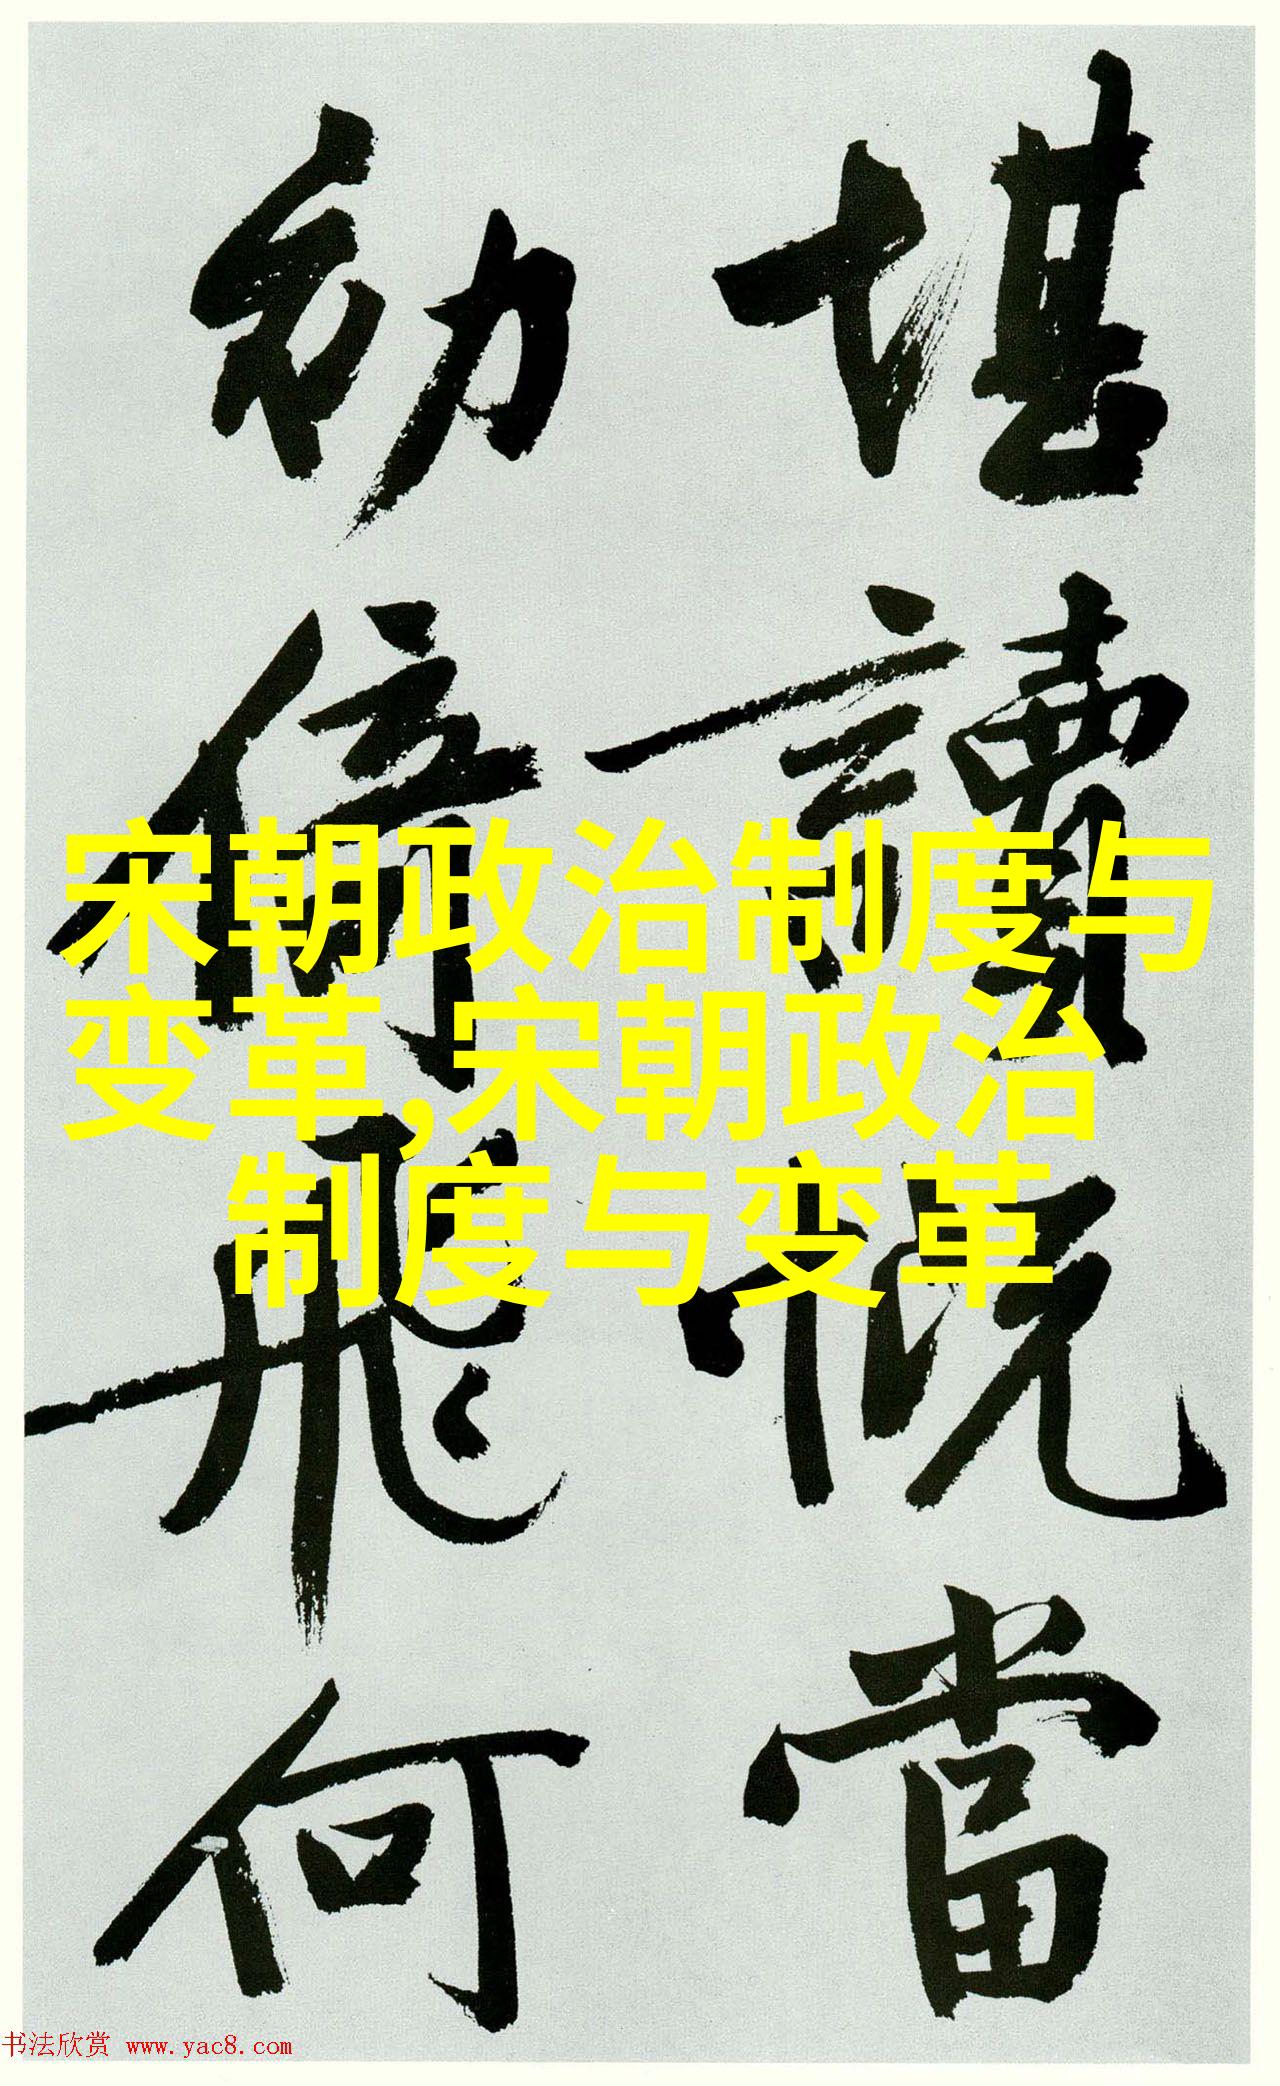 堪讀慨當
幼倚飛何
宋朝政治制度与
变革,宋朝政治
制度与变革
书法欣赏 www.yac8.com